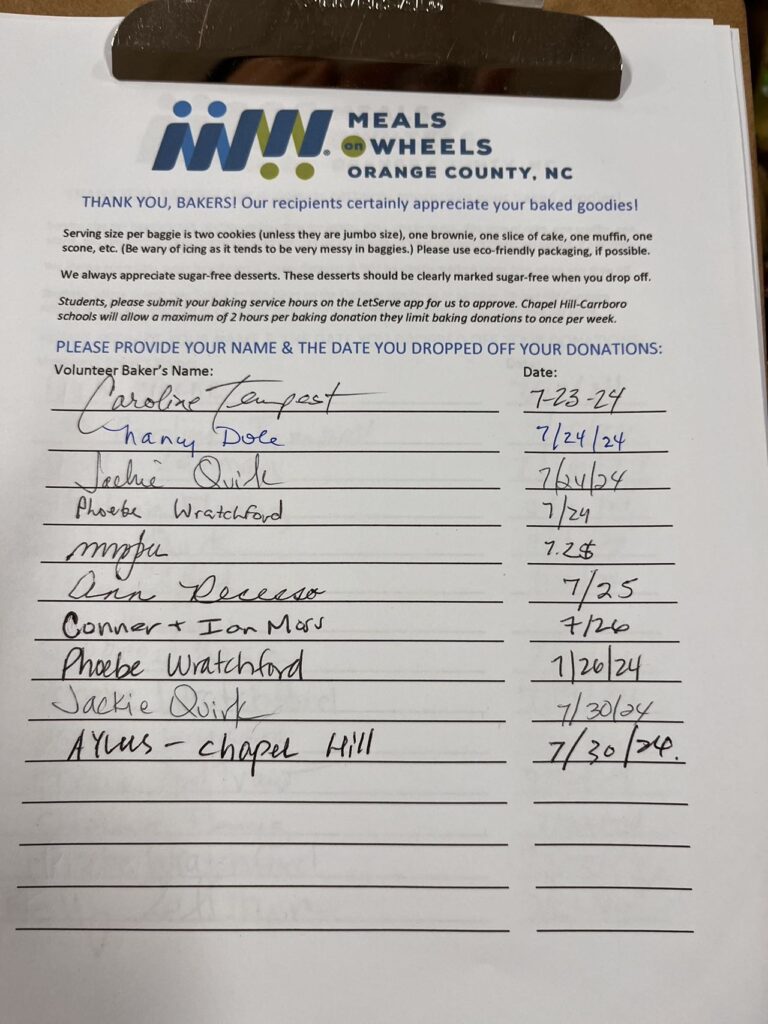 MEALS
on WHEELS
ORANGE COUNTY, NC
THANK YOU, BAKERS! Our recipients certainly appreciate your baked goodies!
Serving size per baggie is two cookies (unless they are jumbo size), one brownie, one slice of cake, one muffin, one
scone, etc. (Be wary of icing as it tends to be very messy in baggies.) Please use eco-friendly packaging, if possible.
We always appreciate sugar-free desserts. These desserts should be clearly marked sugar-free when you drop off.
Students, please submit your baking service hours on the LetServe app for us to approve. Chapel Hill-Carrboro
schools will allow a maximum of 2 hours per baking donation they limit baking donations to once per week.
PLEASE PROVIDE YOUR NAME & THE DATE YOU DROPPED OFF YOUR DONATIONS:
Volunteer Baker's Name: Date:
Caroline Tempest 7-23-24
Nancy Dole 7/24/24
Jackie Quirk 7/24/24
Phoebe Wratchford 7/24
Ann 7/25
Conner + Ian 7/26
Phoebe Wratchford 7/26/24
Jackie Quirk 7/30/24
AYLUS - Chapel Hill 7/30/24.